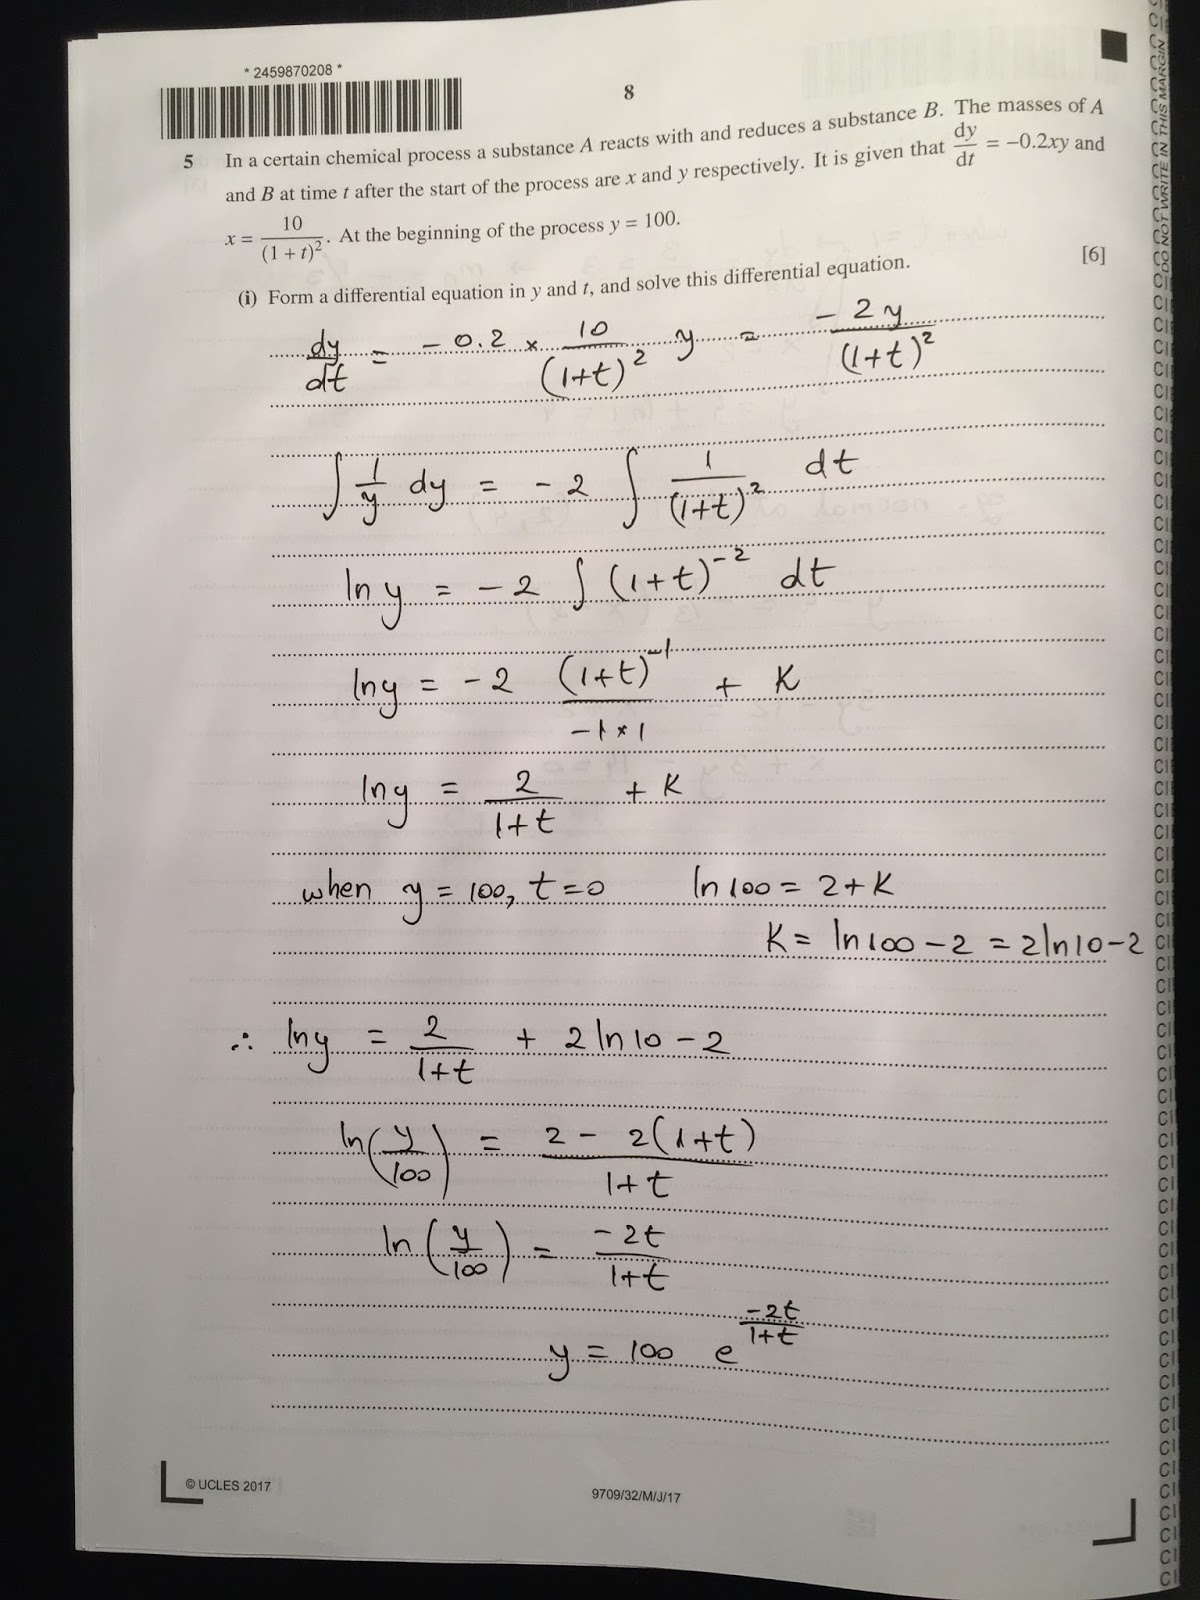 * 2459870208 *
8
5 In a certain chemical process a substance A reacts with and reduces a substance B. The masses of A
and B at time t after the start of the process are x and y respectively. It is given that dy/dt = −0.2xy and
x = 10/(1 + t)². At the beginning of the process y = 100.
(i) Form a differential equation in y and t, and solve this differential equation. [6]
dy/dt = −0.2 × 10/(1+t)² y = −2y/(1+t)²
∫ 1/y dy = −2 ∫ 1/(1+t)² dt
ln y = −2 ∫ (1+t)⁻² dt
ln y = −2 (1+t)⁻¹/(−1×1) + K
ln y = 2/(1+t) + K
when y = 100, t=0 ln 100 = 2+K
K = ln 100 − 2 = 2 ln 10 − 2
∴ ln y = 2/(1+t) + 2 ln 10 − 2
ln(y/100) = (2 − 2(1+t))/(1+t)
ln(y/100) = −2t/(1+t)
y = 100 e^(−2t/(1+t))
© UCLES 2017
9709/32/M/J/17
DO NOT WRITE IN THIS MARGIN